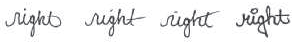 right right right right